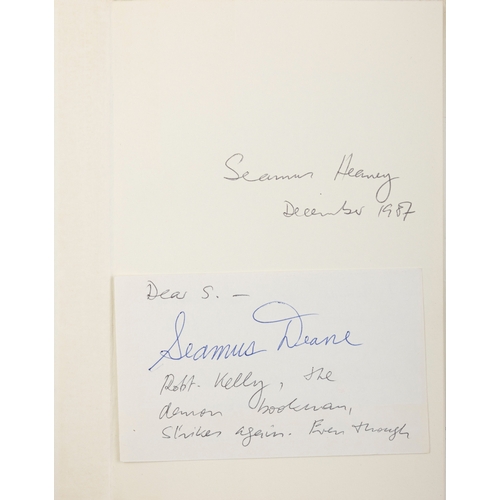 Seamus Heaney
December 1987
Dear S. —
Seamus Deane
Robt. Kelly, the
demon bookman,
strikes again. Even though